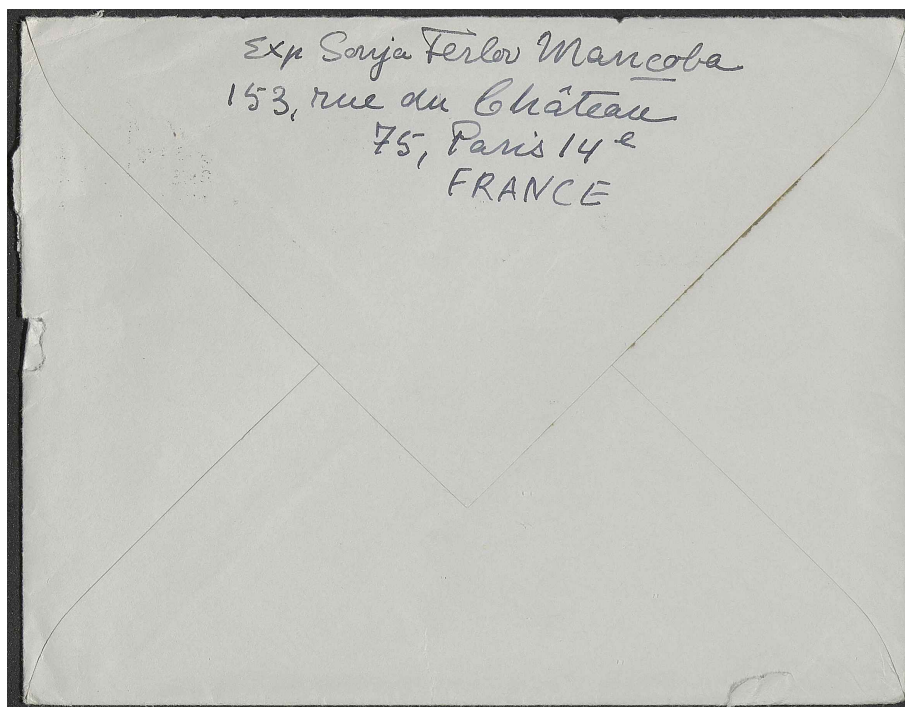 Exp Sonja Ferlov Mancoba
153, rue du Château
75, Paris 14e
FRANCE